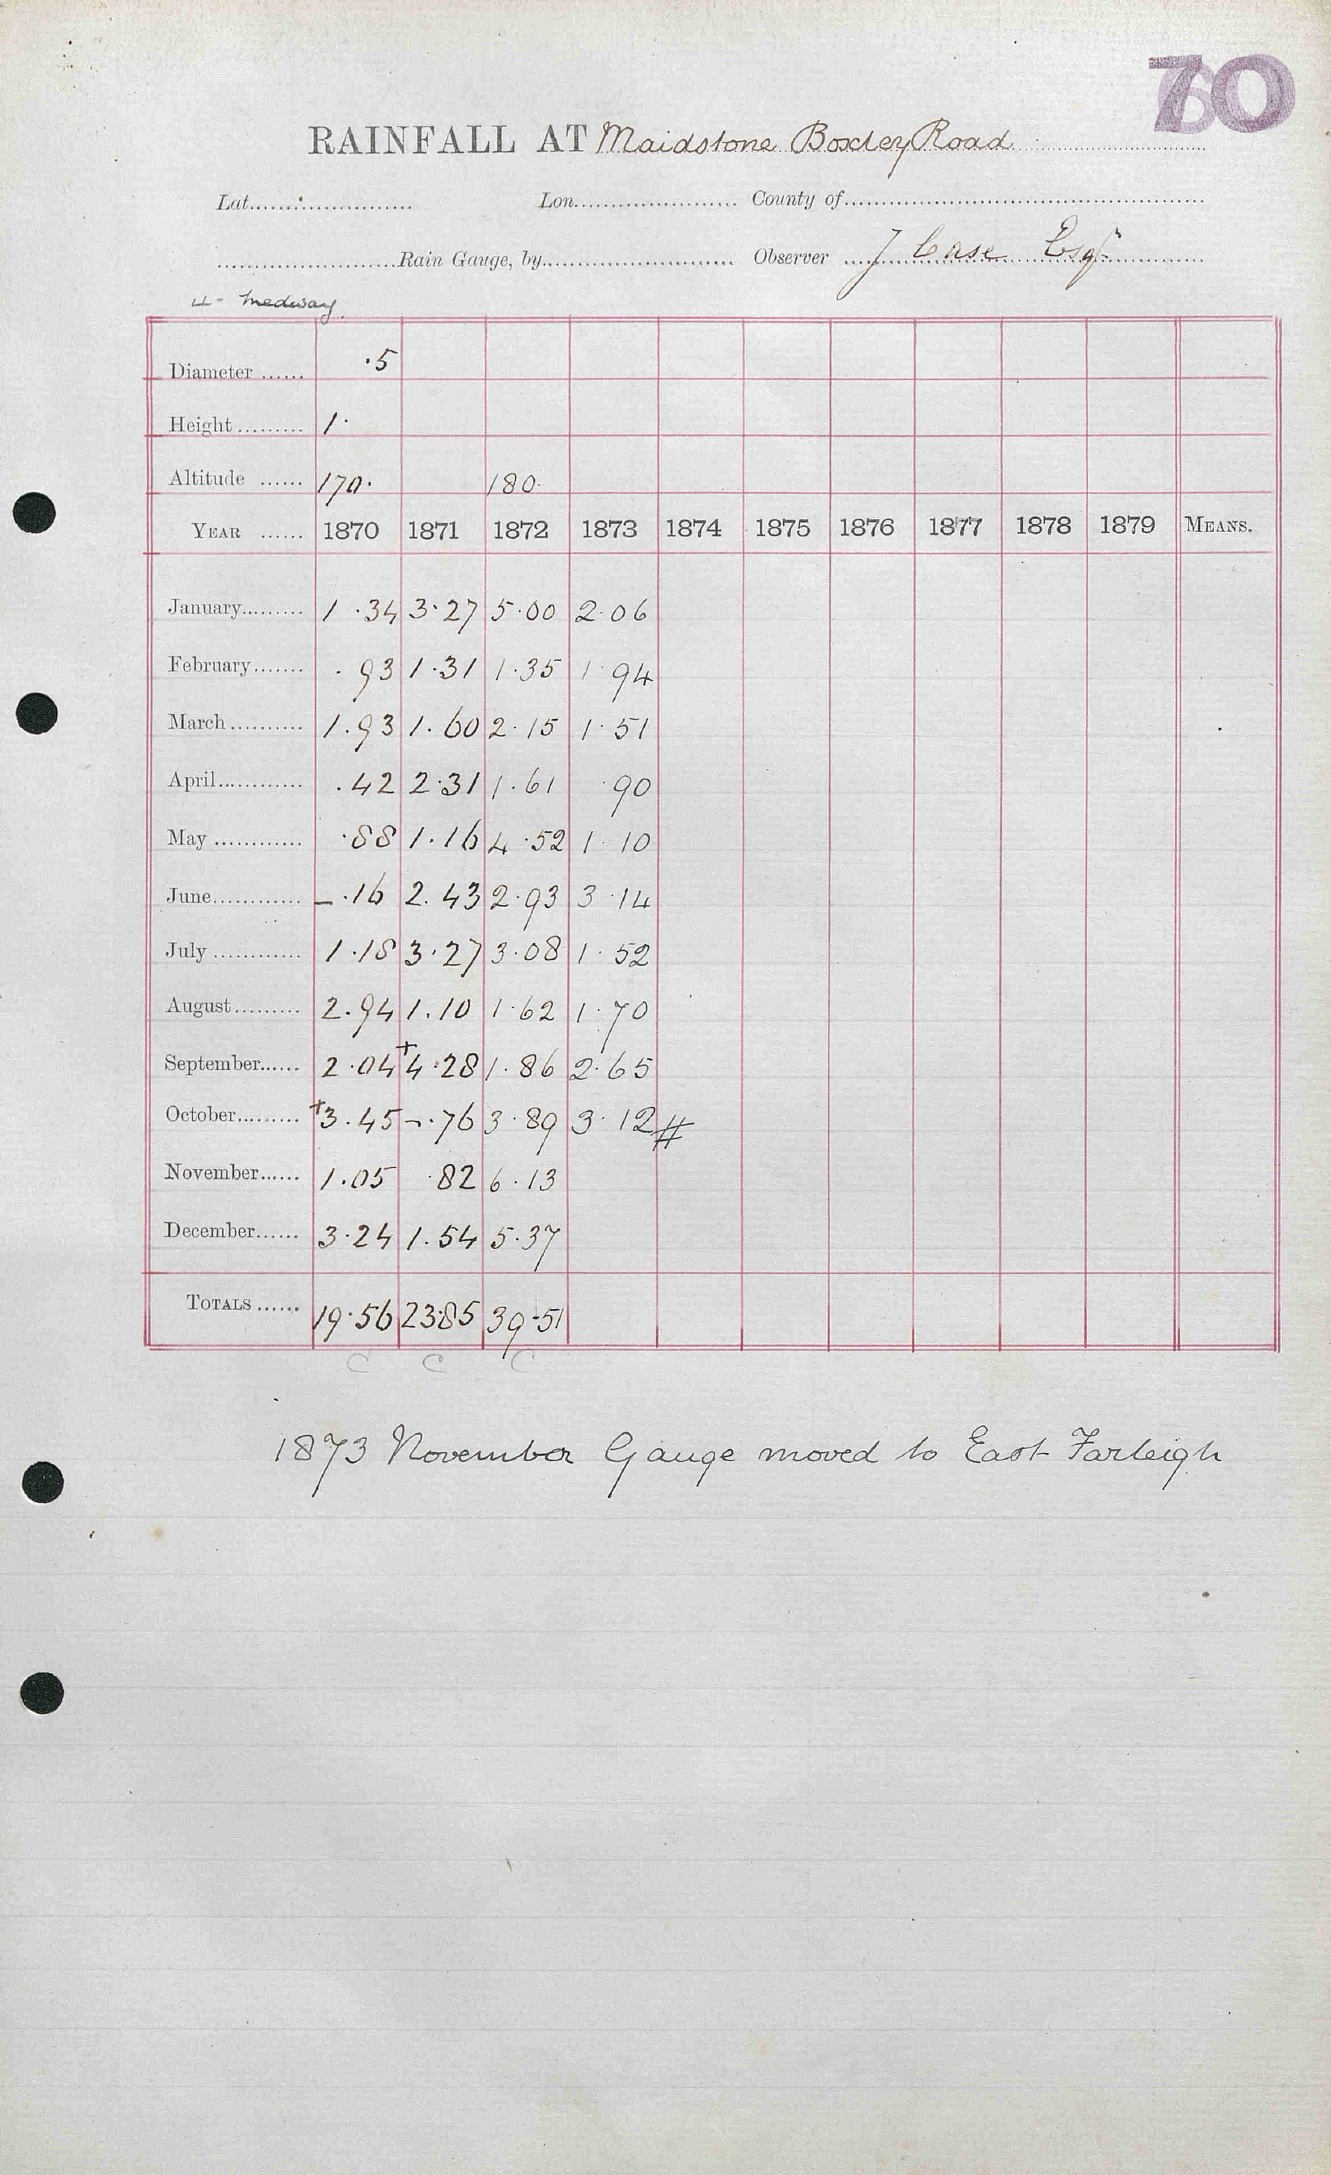 70
RAINFALL AT Maidstone Boxley Road
Lat. Lon. County of
Rain Gauge, by Observer J Case Esqr
4 - Medway
Diameter ...... ·5
Height ......... 1·
Altitude ...... 170· 180·
YEAR ...... 1870 1871 1872 1873 1874 1875 1876 1877 1878 1879 MEANS.
January......... 1·34 3·27 5·00 2·06
February....... ·93 1·31 1·35 1·94
March .......... 1·93 1·60 2·15 1·51
April............ ·42 2·31 1·61 ·90
May ............ ·88 1·16 4·52 1·10
June............ – ·16 2·43 2·93 3·14
July ............ 1·18 3·27 3·08 1·52
August......... 2·94 1·10 1·62 1·70
September...... 2·04 +4·28 1·86 2·65
October......... +3·45 –·76 3·89 3·12 #
November...... 1·05 ·82 6·13
December...... 3·24 1·54 5·37
TOTALS ...... 19·56 23·85 39·51
C C C
1873 November Gauge moved to East Farleigh